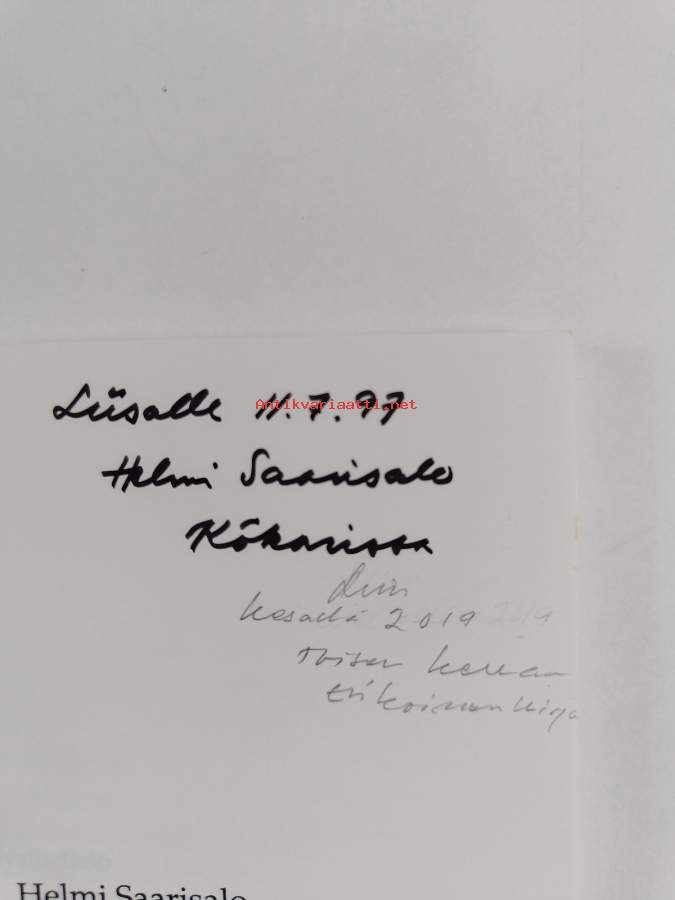 Liisalle 11.7.97
Antikvariaatti.net
Helmi Saarisalo
Kökarissa
Luin
kesällä 2019
toisen kerran
erikoinen kirja
Helmi Saarisalo